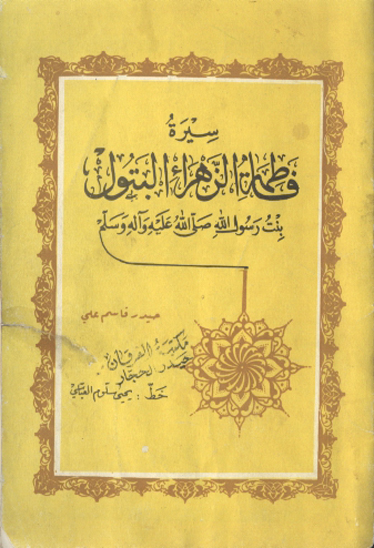 سيرة
فاطمة الزهراء البتول
بنت رسول الله صلى الله عليه وآله وسلم
حيدر قاسم علي
مكتبة الفرقان
حيدر الحجار
خط : يحيى سلوم العباسي